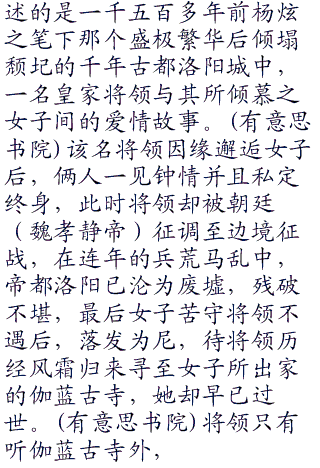 述的是一千五百多年前杨炫
之笔下那个盛极繁华后倾塌
颓圮的千年古都洛阳城中，
一名皇家将领与其所倾慕之
女子间的爱情故事。(有意思
书院)该名将领因缘邂逅女子
后，俩人一见钟情并且私定
终身，此时将领却被朝廷
（魏孝静帝）征调至边境征
战，在连年的兵荒马乱中，
帝都洛阳已沦为废墟，残破
不堪，最后女子苦守将领不
遇后，落发为尼，待将领历
经风霜归来寻至女子所出家
的伽蓝古寺，她却早已过
世。(有意思书院)将领只有
听伽蓝古寺外，